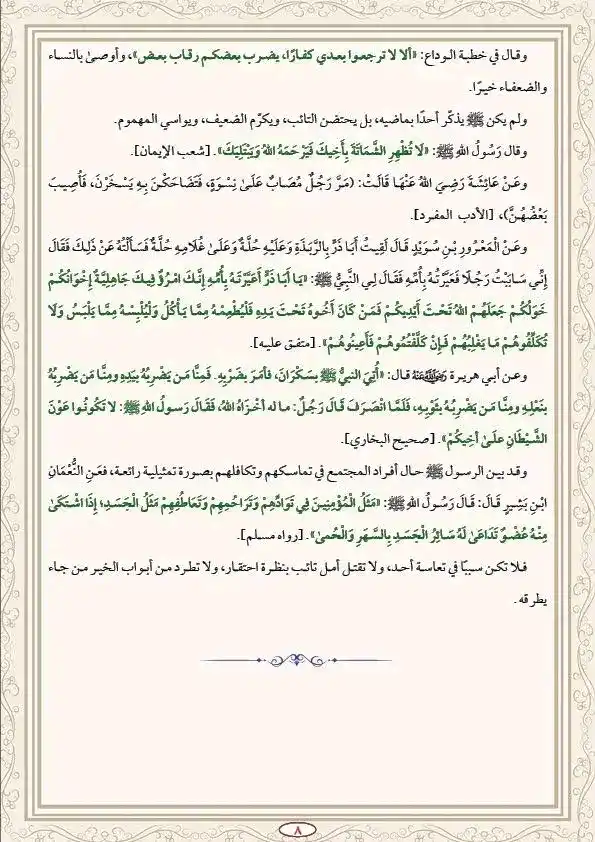 وقال في خطبة الوداع: «ألا لا ترجعوا بعدي كفارًا، يضرب بعضكم رقاب بعض»، وأوصىٰ بالنساء
والضعفاء خيرًا.
ولم يكن ﷺ يذكّر أحدًا بماضيه، بل يحتضن التائب، ويكرّم الضعيف، ويواسي المهموم.
وقال رَسُولُ اللهِ ﷺ: «لَا تُظْهِرِ الشَّمَاتَةَ بِأَخِيكَ فَيَرْحَمَهُ اللهُ وَيَبْتَلِيَكَ». [شعب الإيمان].
وعَنْ عَائِشَةَ رَضِيَ اللهُ عَنْهَا قَالَتْ: (مَرَّ رَجُلٌ مُصَابٌ عَلَىٰ نِسْوَةٍ، فَتَضَاحَكْنَ بِهِ يَسْخَرْنَ، فَأُصِيبَ
بَعْضُهُنَّ)، [الأدب المفرد].
وعَنْ الْمَعْرُورِ بْنِ سُوَيْدٍ قَالَ لَقِيتُ أَبَا ذَرٍّ بِالرَّبَذَةِ وَعَلَيْهِ حُلَّةٌ وَعَلَىٰ غُلَامِهِ حُلَّةٌ فَسَأَلْتُهُ عَنْ ذَلِكَ فَقَالَ
إِنِّي سَابَبْتُ رَجُلًا فَعَيَّرْتُهُ بِأُمِّهِ فَقَالَ لِي النَّبِيُّ ﷺ: «يَا أَبَا ذَرٍّ أَعَيَّرْتَهُ بِأُمِّهِ إِنَّكَ امْرُؤٌ فِيكَ جَاهِلِيَّةٌ إِخْوَانُكُمْ
خَوَلُكُمْ جَعَلَهُمْ اللهُ تَحْتَ أَيْدِيكُمْ فَمَنْ كَانَ أَخُوهُ تَحْتَ يَدِهِ فَلْيُطْعِمْهُ مِمَّا يَأْكُلُ وَلْيُلْبِسْهُ مِمَّا يَلْبَسُ وَلَا
تُكَلِّفُوهُمْ مَا يَغْلِبُهُمْ فَإِنْ كَلَّفْتُمُوهُمْ فَأَعِينُوهُمْ». [متفق عليه].
وعن أبي هريرة رضي الله عنه قال: «أُتِيَ النبيُّ ﷺ بسَكْرَانَ، فأمَرَ بضَرْبِهِ. فَمِنَّا مَن يَضْرِبُهُ بيَدِهِ ومِنَّا مَن يَضْرِبُهُ
بنَعْلِهِ ومِنَّا مَن يَضْرِبُهُ بثَوْبِهِ، فَلَمَّا انْصَرَفَ قَالَ رَجُلٌ: ما له أخْزَاهُ اللهُ، فَقَالَ رَسولُ اللهِ ﷺ: لا تَكُونُوا عَوْنَ
الشَّيْطَانِ علَىٰ أخِيكُمْ». [صحيح البخاري].
وقد بين الرسول ﷺ حال أفراد المجتمع في تماسكهم وتكافلهم بصورة تمثيلية رائعة، فعَنِ النُّعْمَانِ
ابْنِ بَشِيرٍ قَالَ: قَالَ رَسُولُ اللهِ ﷺ: «مَثَلُ الْمُؤْمِنِينَ فِي تَوَادِّهِمْ وَتَرَاحُمِهِمْ وَتَعَاطُفِهِمْ مَثَلُ الْجَسَدِ؛ إِذَا اشْتَكَىٰ
مِنْهُ عُضْوٌ تَدَاعَىٰ لَهُ سَائِرُ الْجَسَدِ بِالسَّهَرِ وَالْحُمىٰ». [رواه مسلم].
فلا تكن سببًا في تعاسة أحد، ولا تقتل أمل تائب بنظرة احتقار، ولا تطرد من أبواب الخير من جاء
يطرقه.
٨